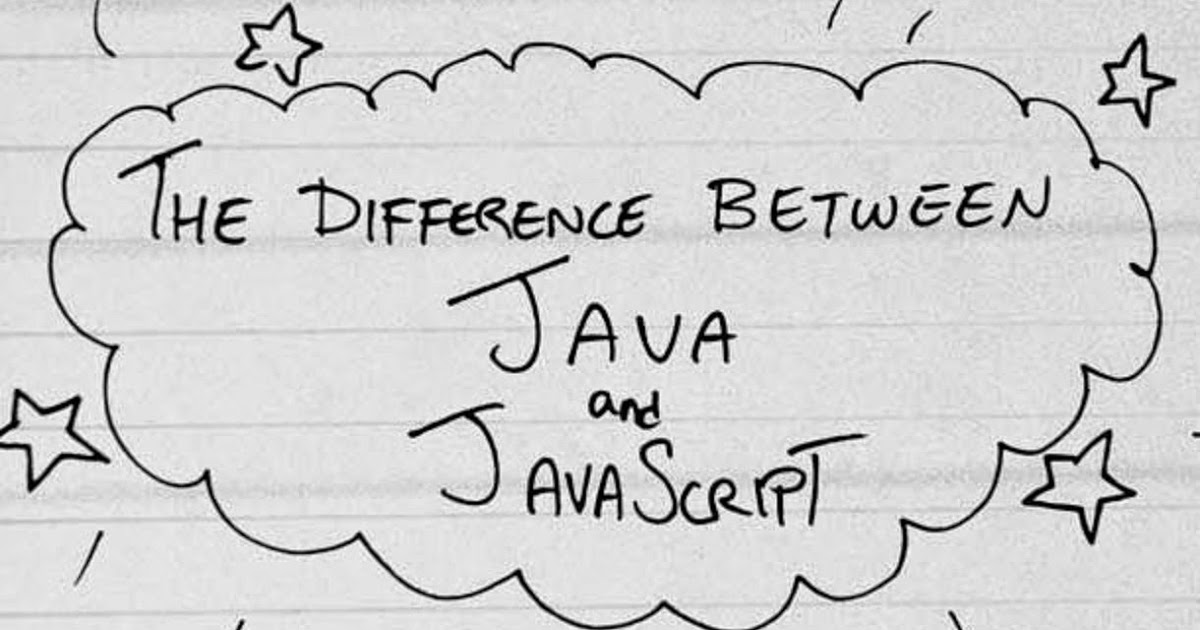 THE DIFFERENCE BETWEEN
JAVA
and
JAVASCRIPT